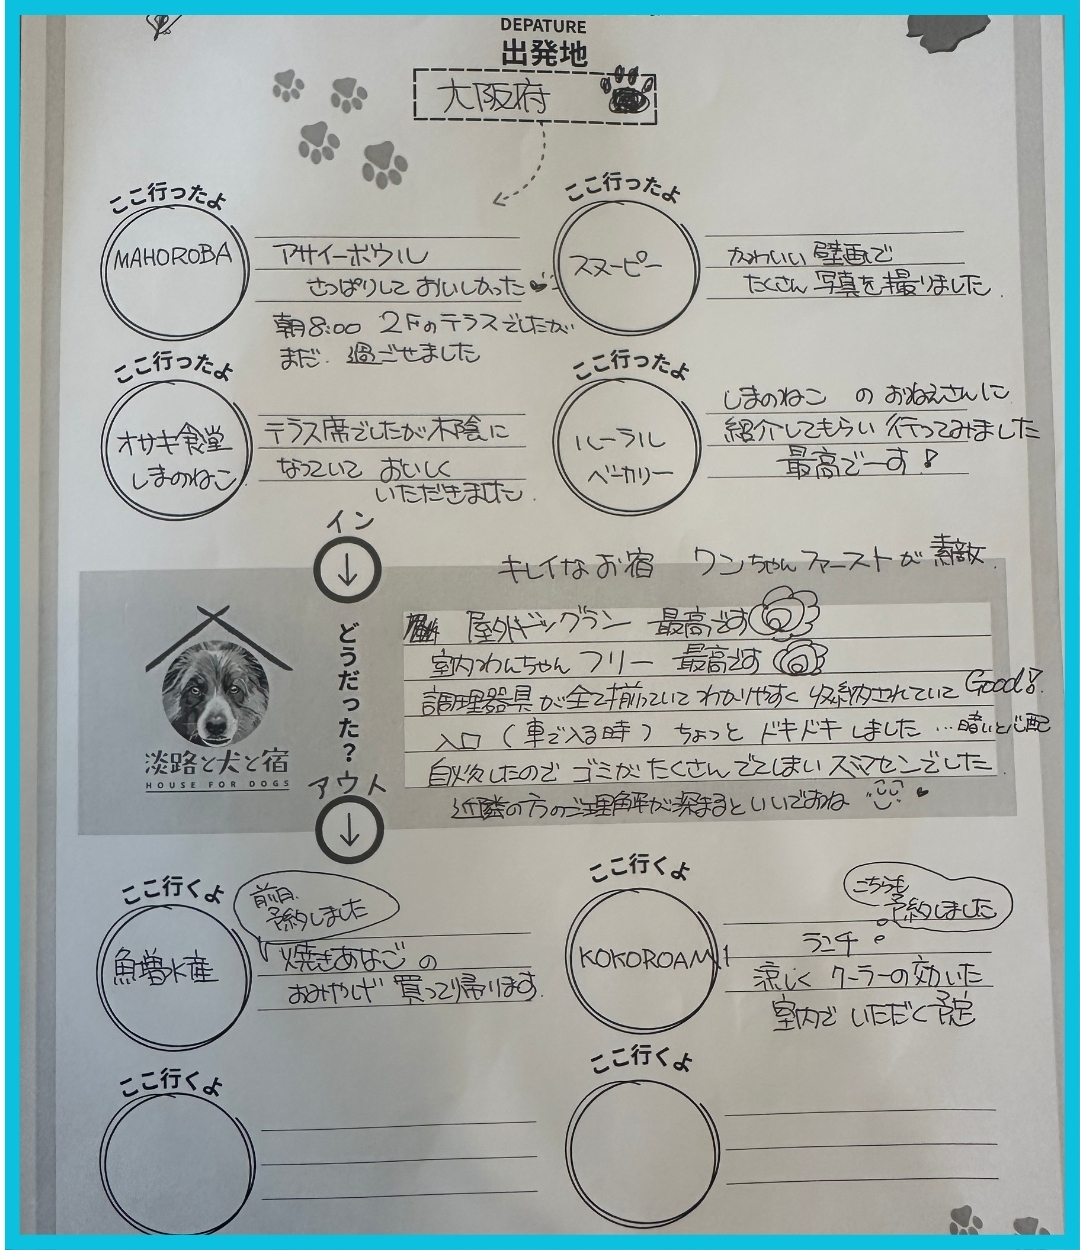 DEPATURE
出発地
大阪府
ここ行ったよ
MAHOROBA
アサイーボウル
さっぱりして おいしかった
朝8:00 2Fのテラスでしたが
まだ、過ごせました
ここ行ったよ
スヌーピー
かわいい 壁画で
たくさん 写真を撮りました.
ここ行ったよ
オサキ食堂
しまのねこ
テラス席でしたが木陰に
なっていて おいしく
いただきました.
ここ行ったよ
ルーラル
ベーカリー
しまのねこ の おねえさんに
紹介してもらい 行ってみました
最高でーす!
イン
キレイなお宿 ワンちゃんファーストが 素敵.
どうだった?
屋外ドッグラン 最高です
室内わんちゃん フリー 最高です
調理器具が全て揃っていて わかりやすく 収納されていて Good!.
入口 (車で入る時) ちょっと ドキドキ しました …暗いと心配
自炊したので ゴミが たくさん でてしまい スミマセンでした.
近隣の方のご理解が深まるといいですね
淡路と犬と宿
HOUSE FOR DOGS
アウト
ここ行くよ
前日.
予約しました
魚増水産
焼きあなご の
おみやげ 買って帰ります.
ここ行くよ
こちらも
予約しました
KOKOROAMI
ランチ
涼しく クーラーの効いた
室内で いただく予定
ここ行くよ
ここ行くよ